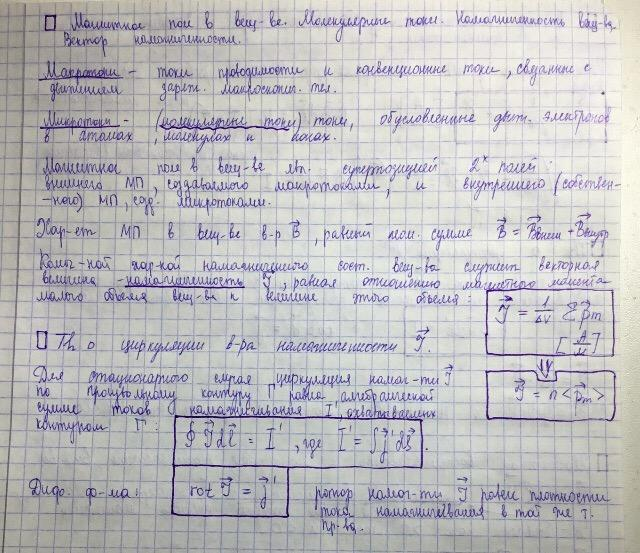 Магнитное поле в вещ-ве. Молекулярные токи. Намагниченность вещ-ва.
Вектор намагниченности.
Макротоки – токи проводимости и конвенционные токи, связанные с
движением заряж. макроскопич. тел.
Микротоки – (молекулярные токи) токи, обусловленные движ. электронов
в атомах, молекулах и ионах.
Магнитное поле в вещ-ве явл. суперпозицией 2х полей:
внешнего МП, создаваемого макротоками, и внутреннего (собствен-
-ного) МП, созд. микротоками.
Хар-ет МП в вещ-ве в-р B⃗, равный геом. сумме B⃗ = B⃗внеш + B⃗внутр
Колич-ной хар-кой намагниченного сост. вещ-ва служит векторная
величина – намагниченность J⃗, равная отношению магнитного момента
малого объема вещ-ва к величине этого объема:
J⃗ = 1/ΔV Σ p⃗m
[А/м]
⇓
J⃗ = n <p⃗m>
Th о циркуляции в-ра намагниченности J⃗.
Для стационарного случая циркуляция намаг-ти J⃗
по произвольному контуру Г равна алгебраической
сумме токов намагничивания I', охватываемых
контуром Г:
∮ J⃗ dl⃗ = I', где I' = ∫ j⃗' dS⃗.
Дифф. ф-ма:
rot J⃗ = j⃗'
ротор намаг-ти J⃗ равен плотности
тока намагничивания в той же т.
пр-ва.